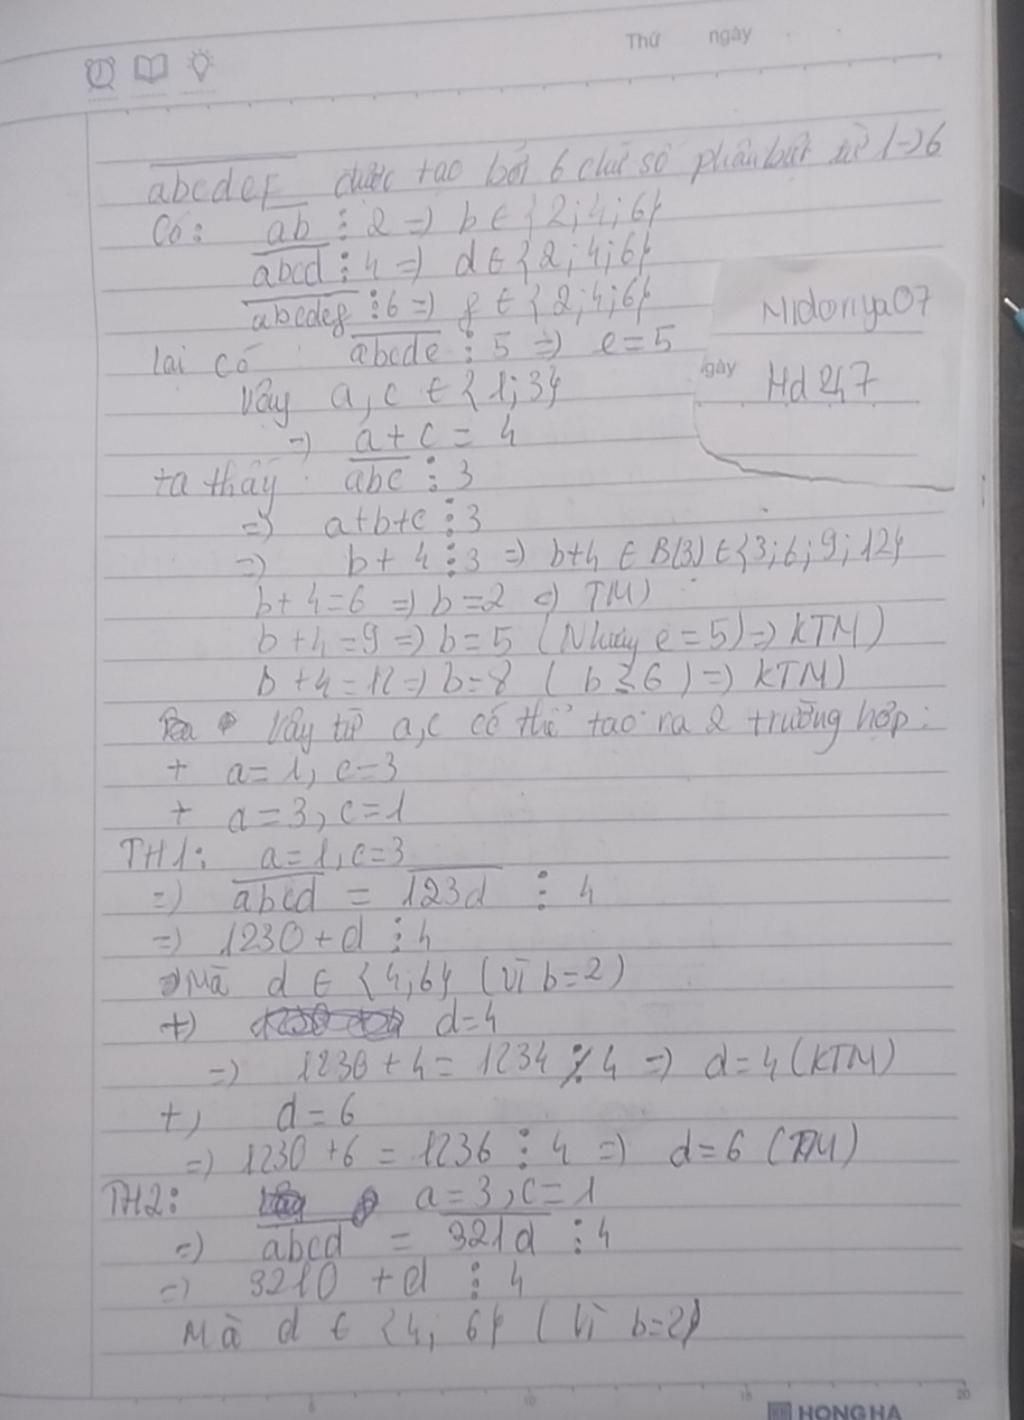 Thứ ngày
abcdef được tạo bởi 6 chữ số phân biệt từ 1->6
Có: ab ⋮ 2 => b ∈ {2;4;6}
abcd ⋮ 4 => d ∈ {2;4;6}
abcdef ⋮ 6 => f ∈ {2;4;6}
Midoriya07
lại có abcde ⋮ 5 => e = 5
gày Hd 247
Vậy a, c ∈ {1;3}
=> a + c = 4
ta thấy abc ⋮ 3
=> a+b+c ⋮ 3
=> b + 4 ⋮ 3 => b+4 ∈ B(3) ∈ {3;6;9;12}
b+4=6 => b=2 (TM)
b+4=9 => b=5 (Nhưng e=5) => KTM)
b+4=12 => b=8 (b ≤ 6) => KTM)
Vậy từ a,c có thể tạo ra 2 trường hợp:
+ a=1, c=3
+ a=3, c=1
TH1: a=1, c=3
=> abcd = 123d ⋮ 4
=> 1230+d ⋮ 4
Mà d ∈ {4;6} (vì b=2)
+) d=4
=> 1230+4 = 1234 ⋮̸ 4 => d=4 (KTM)
+) d=6
=> 1230+6 = 1236 ⋮ 4 => d=6 (TM)
TH2: a=3, c=1
=> abcd = 321d ⋮ 4
=> 3210 + d ⋮ 4
Mà d ∈ {4; 6} (Vì b=2)
5 10 15 20
HONG HA